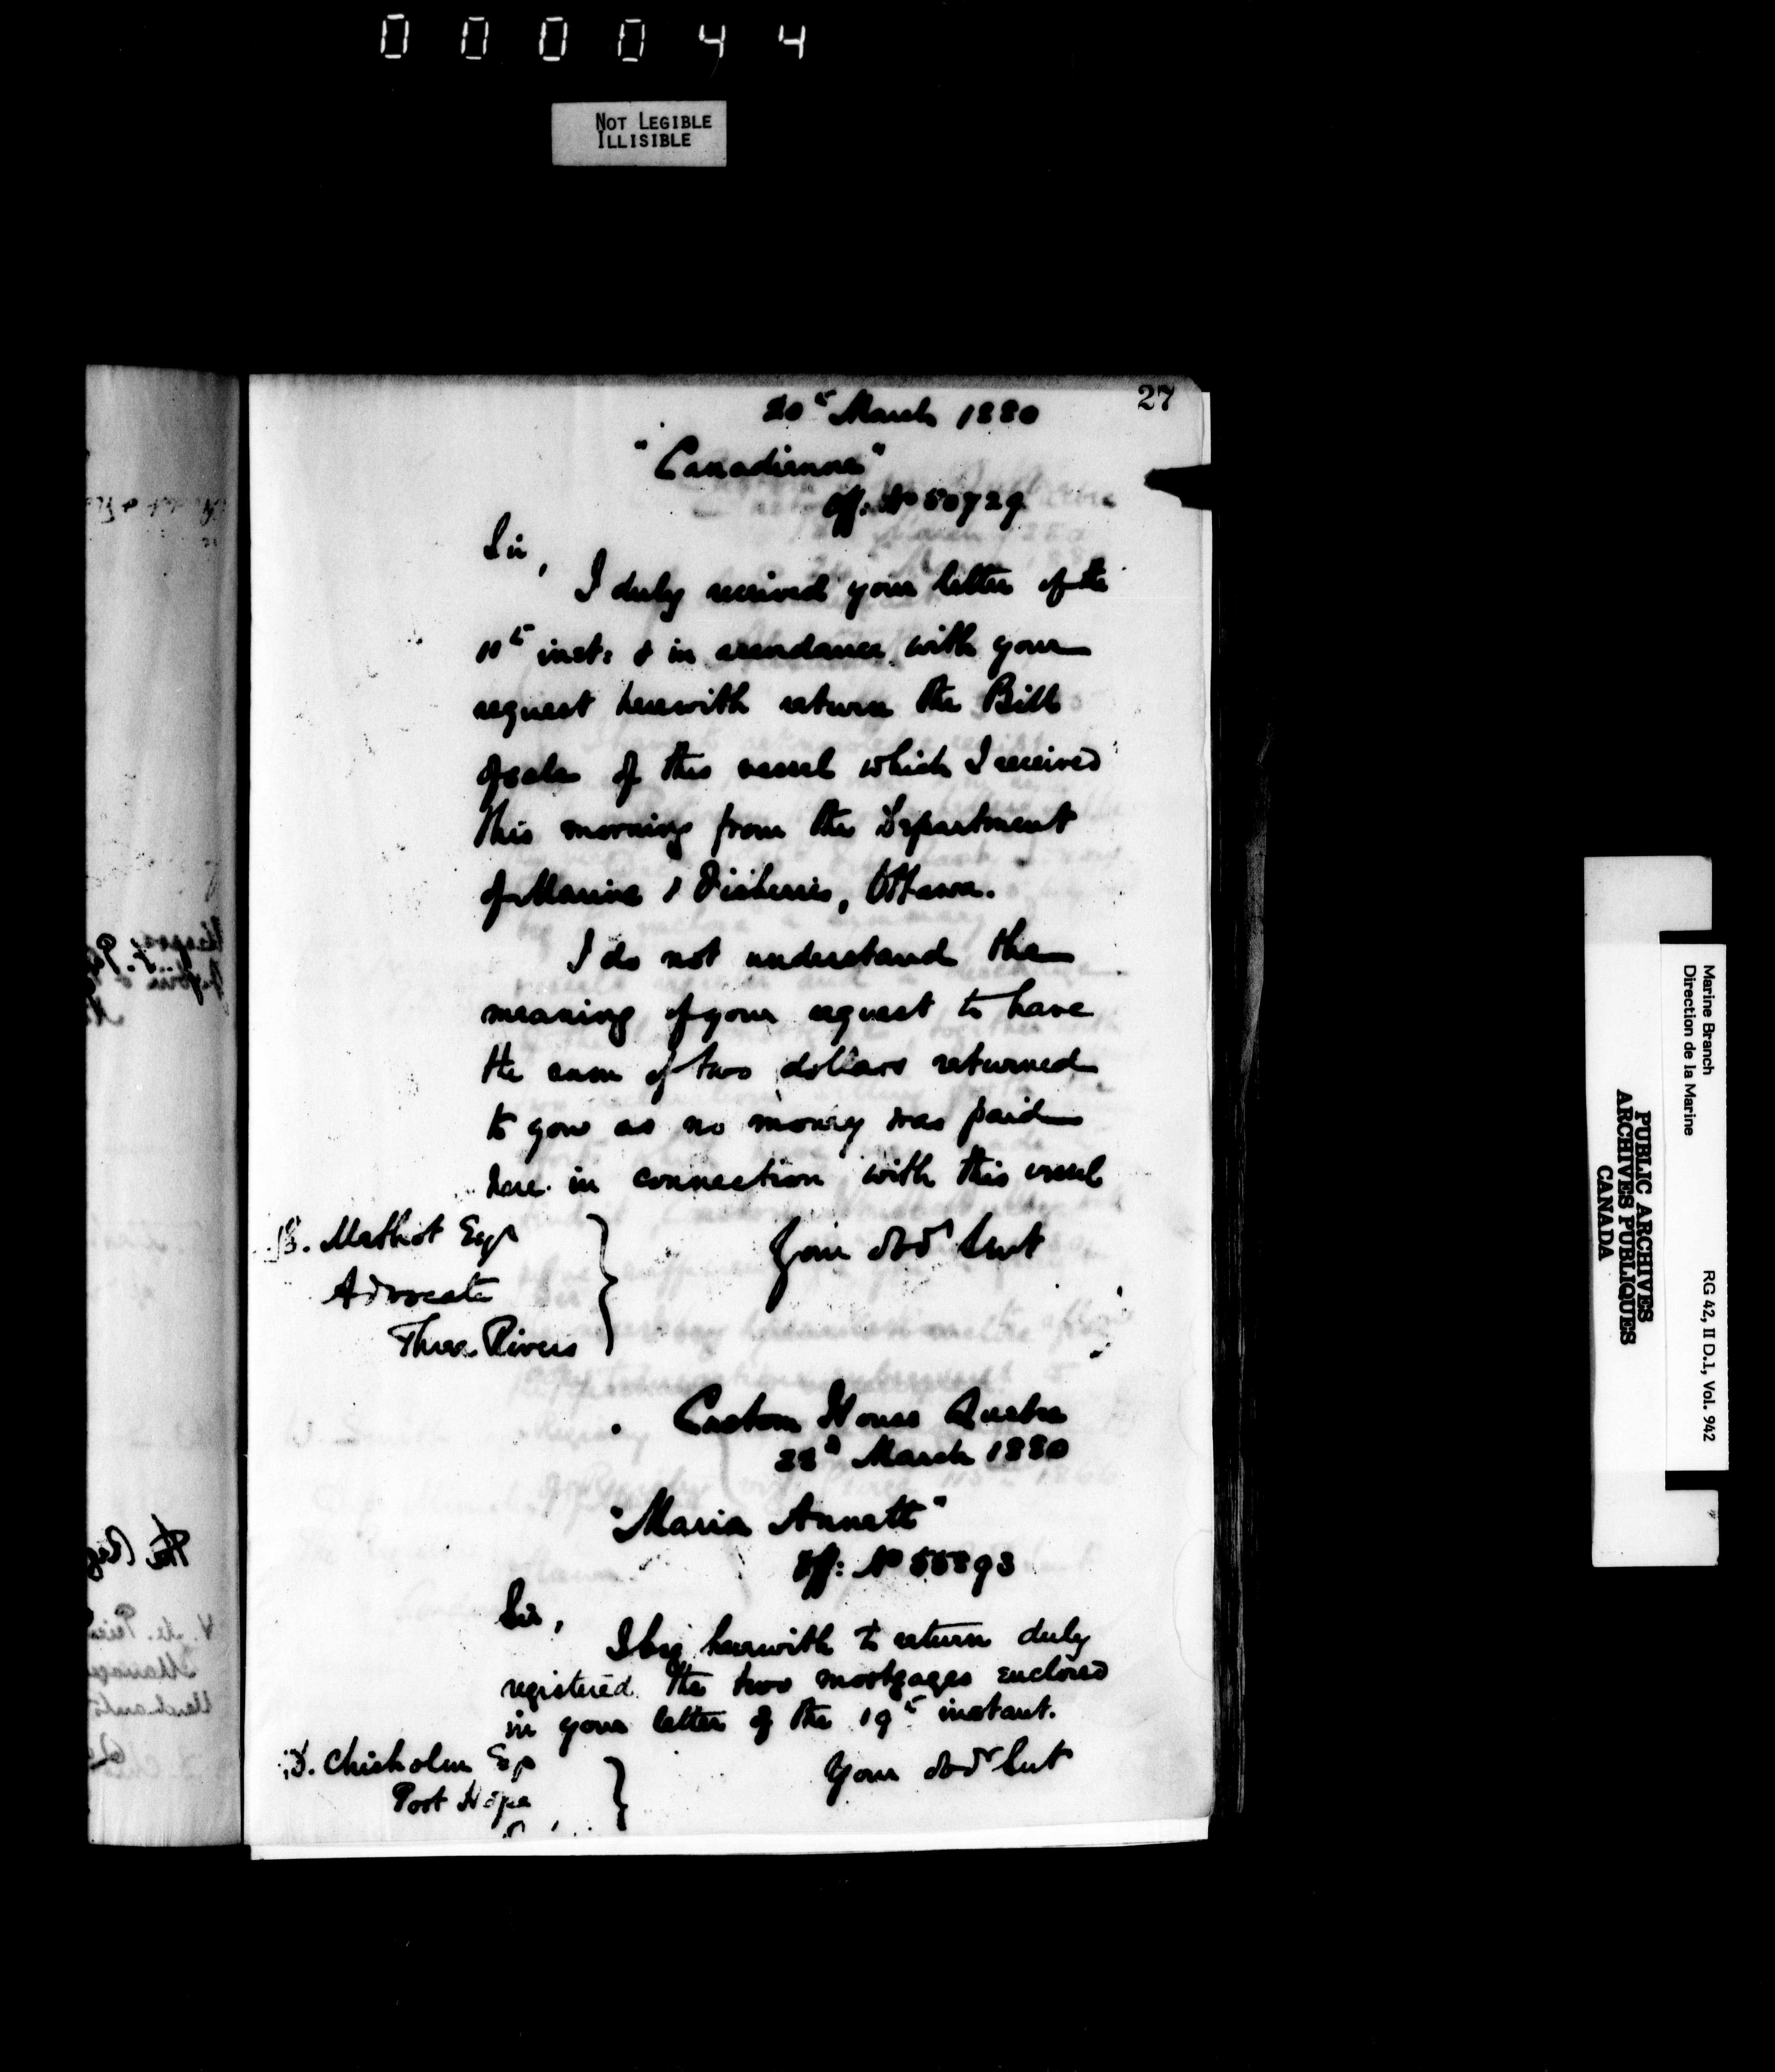 000044
NOT LEGIBLE
ILLISIBLE
27
20th March 1880
"Canadienne"
Off: No 50729
Sir,
I duly received your letter of the
11th inst: & in accordance with your
request herewith return the Bill
of sale of this vessel which I received
this morning from the Department
of Marine & Fisheries, Ottawa.
I do not understand the
meaning of your request to have
the sum of two dollars returned
to you as no money was paid
here in connection with this vessel
Your obdt Servt
B. Mathiot Esqr
Advocate
Three Rivers
Custom House Quebec
22d March 1880
"Maria Annett"
Off: No 55893
Sir,
I beg herewith to return duly
registered the two mortgages enclosed
in your letter of the 19th instant.
Your obdt Svt
D. Chisholm Esqr
Port Hope
Marine Branch
Direction de la Marine
RG 42, II D.1, Vol. 942
PUBLIC ARCHIVES
ARCHIVES PUBLIQUES
CANADA